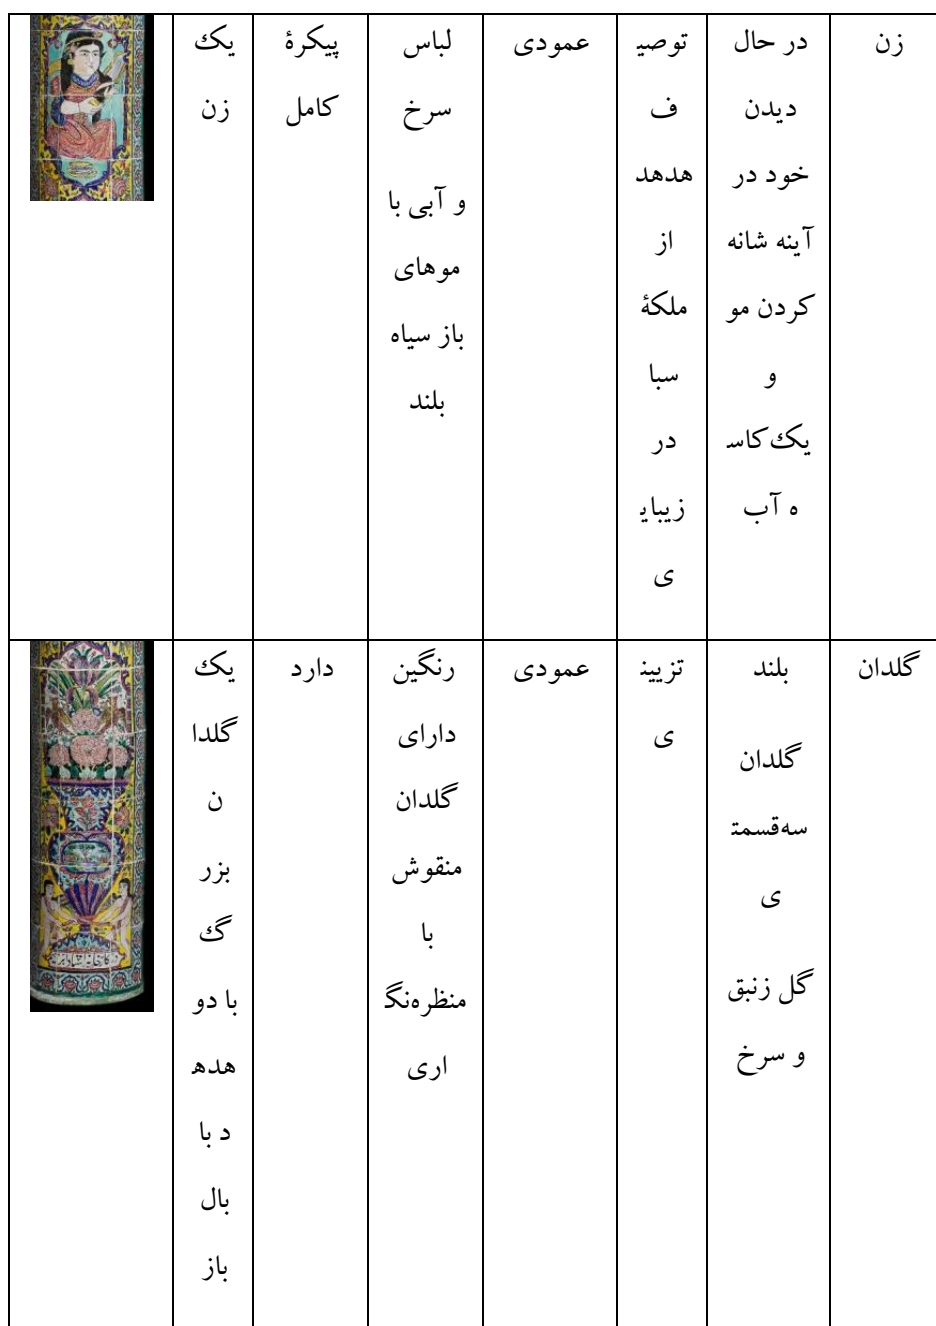 زن
در حال
دیدن
خود در
آینه شانه
کردن مو
و
یک کاس
ه آب
توصی
ف
هدهد
از
ملکهٔ
سبا
در
زیبای
ی
عمودی
لباس
سرخ
و آبی با
موهای
باز سیاه
بلند
پیکرهٔ
کامل
یک
زن
گلدان
بلند
گلدان
سه‌قسمت
ی
گل زنبق
و سرخ
تزیین
ی
عمودی
رنگین
دارای
گلدان
منقوش
با
منظره‌نگ
اری
دارد
یک
گلدا
ن
بزر
گ
با دو
هده
د با
بال
باز